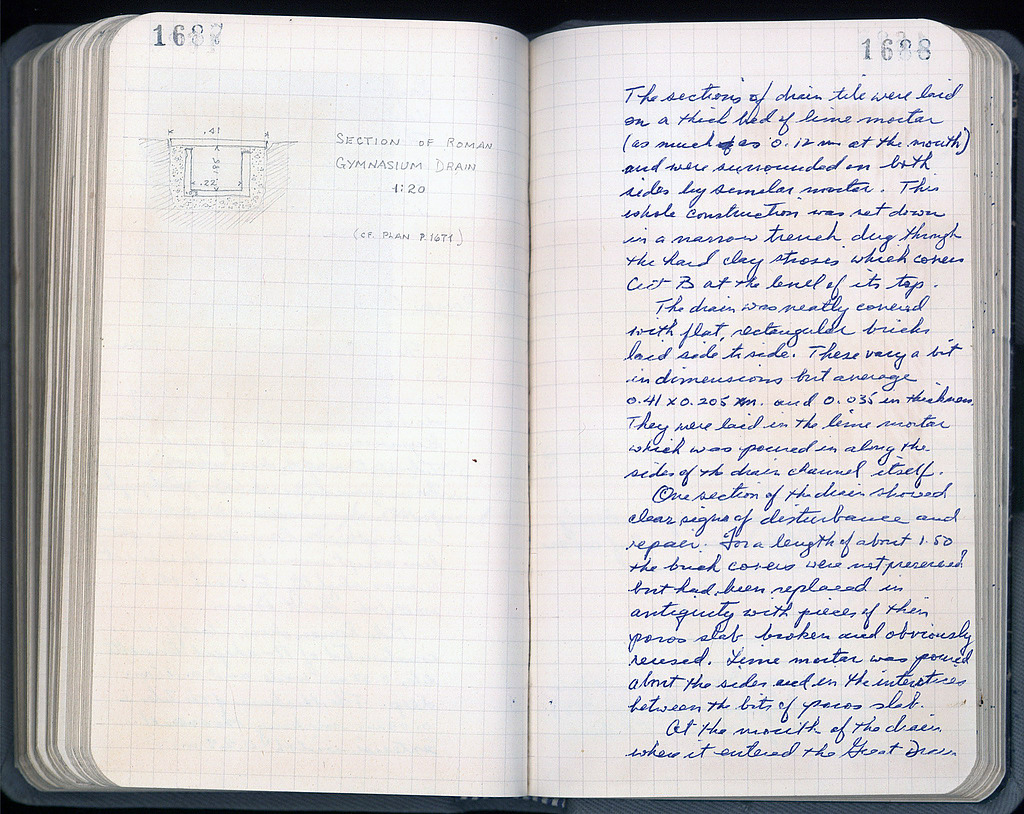 1687
.41
.185
.22
SECTION OF ROMAN
GYMNASIUM DRAIN
1:20
(CF. PLAN P. 1671)
1688
The sections of drain tile were laid
on a thick bed of lime mortar
(as much as 0.12 m at the mouth)
and were surrounded on both
sides by similar mortar. This
whole construction was set down
in a narrow trench dug through
the hard clay stroses which covers
Cist B at the level of its top.
The drain was neatly covered
with flat, rectangular bricks
laid side to side. These vary a bit
in dimensions but average
0.41 x 0.205 m. and 0.035 in thickness.
They were laid in the lime mortar
which was poured in along the
sides of the drain channel itself.
One section of the drain showed
clear signs of disturbance and
repair. For a length of about 1.50
the brick covers were not preserved
but had been replaced in
antiquity with pieces of thin
poros slab broken and obviously
reused. Lime mortar was poured
about the sides and in the interstices
between the bits of poros slab.
At the mouth of the drain
where it entered the Great Drain